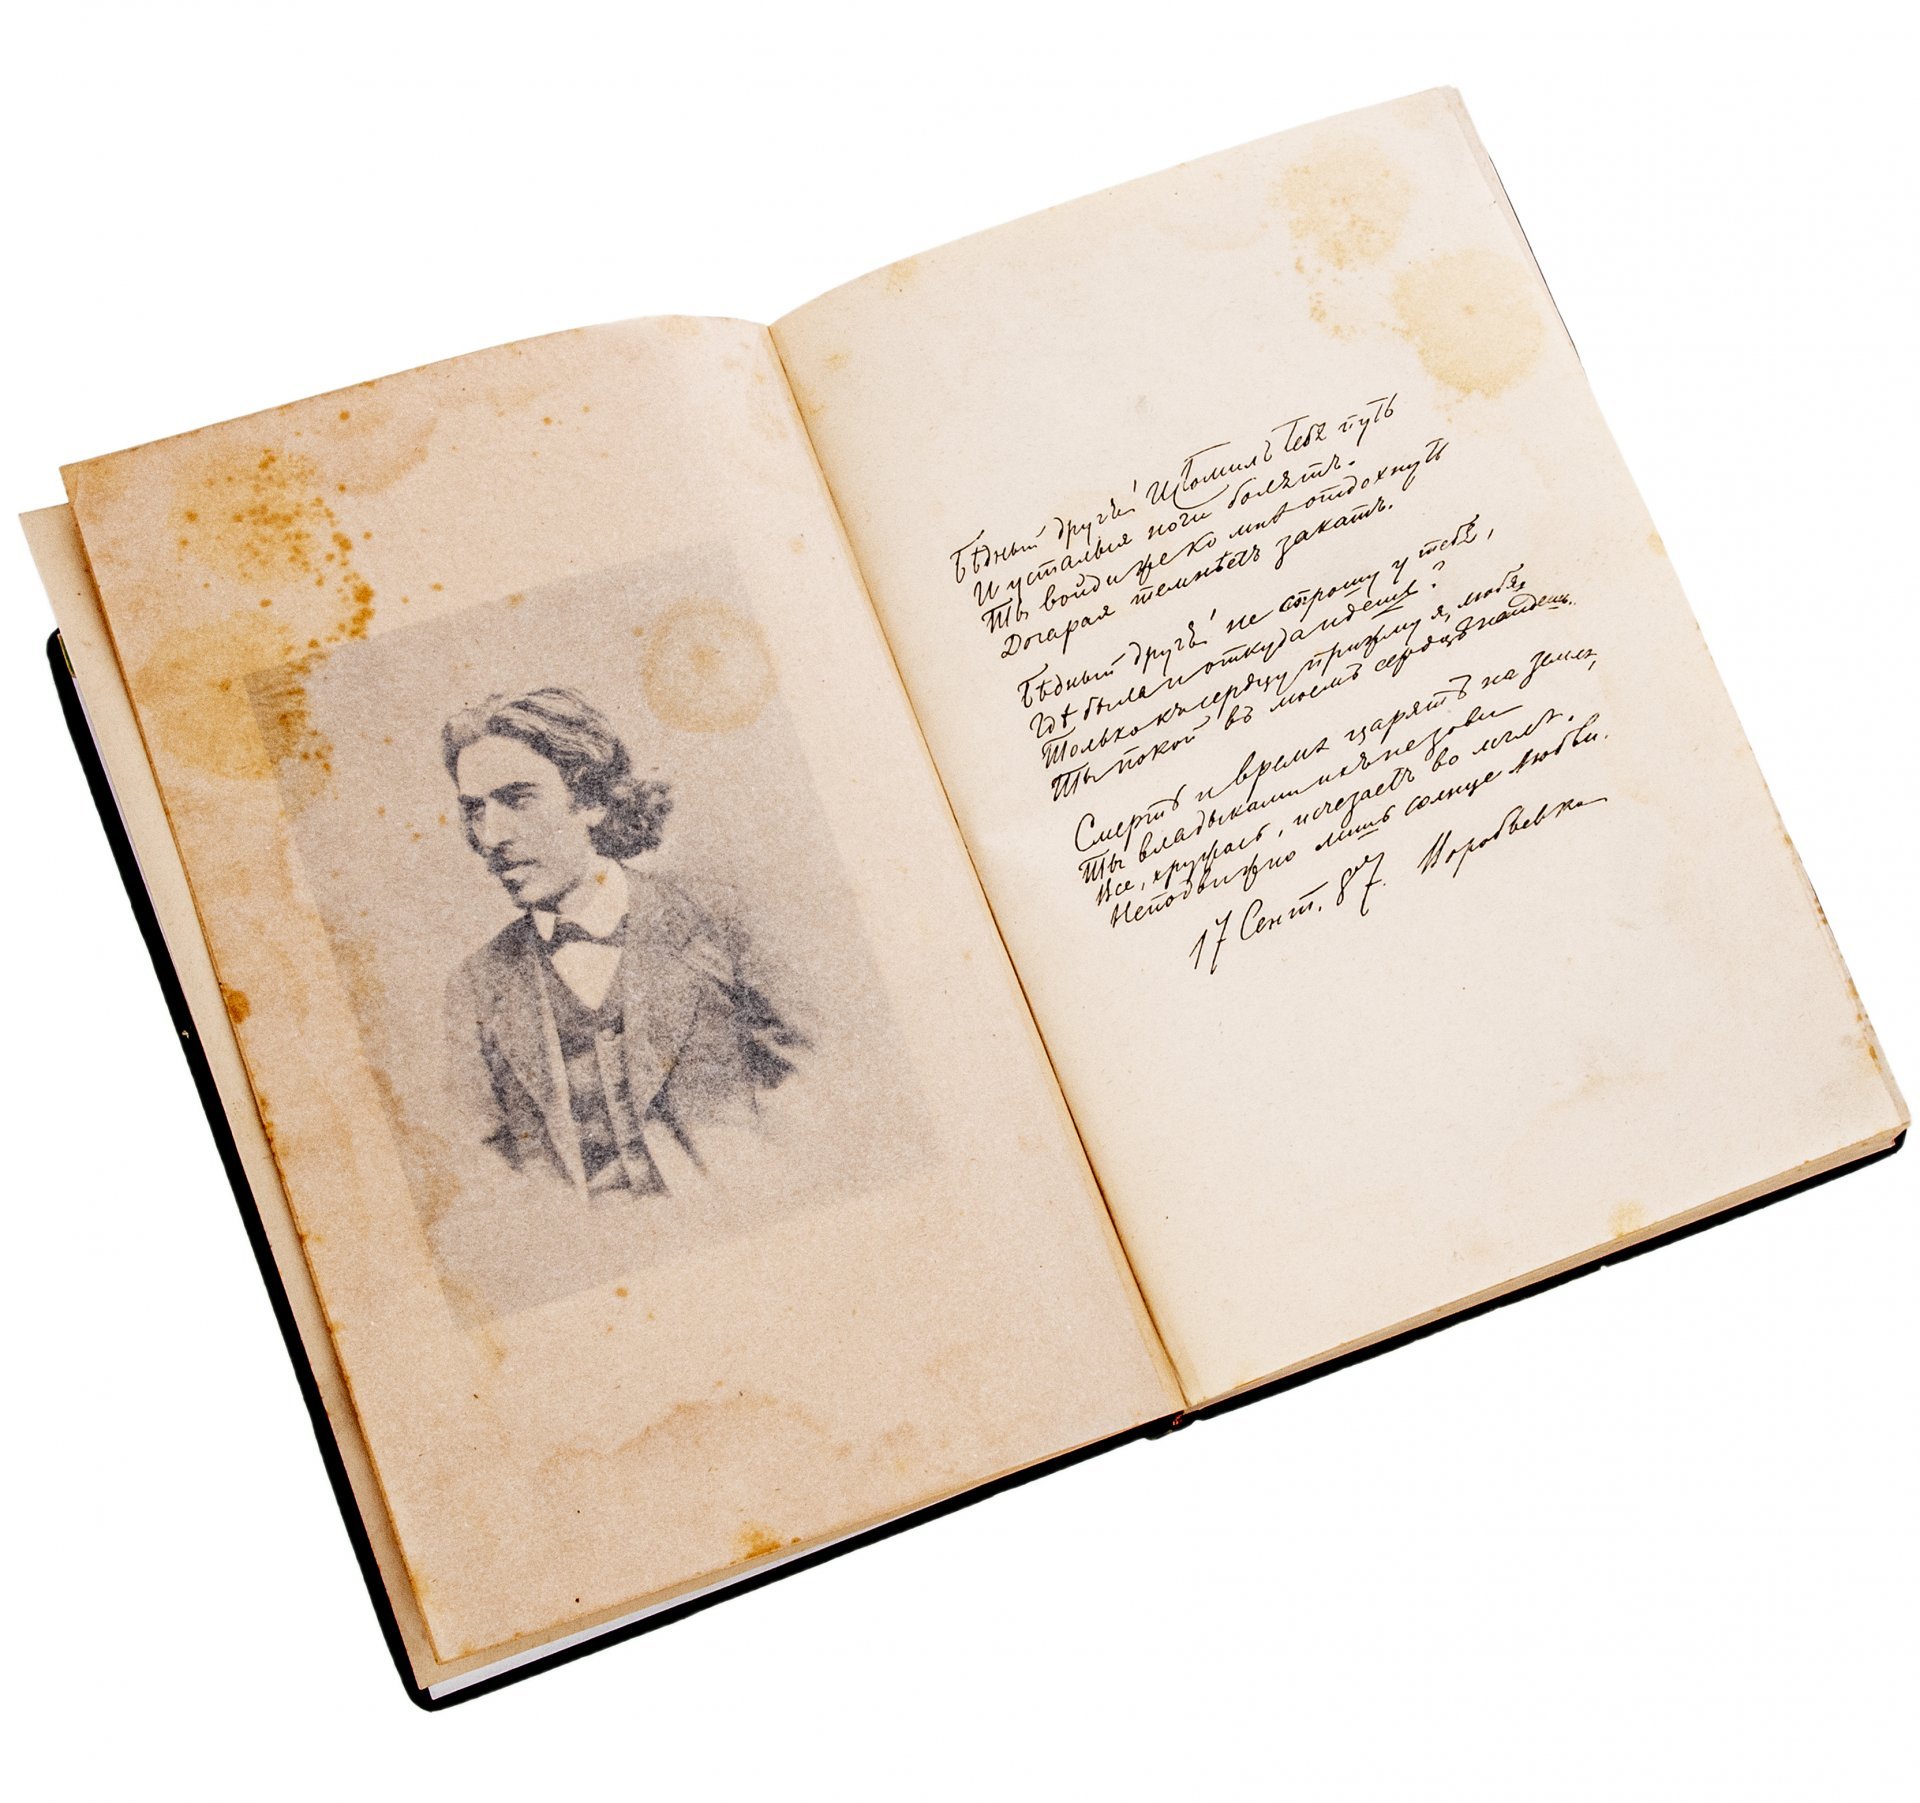 Бѣдный другъ! Истомилъ тебя путь
И усталыя ноги болятъ.
Ты войди же ко мнѣ отдохнуть
Догорая темнѣетъ закатъ.
Бѣдный другъ! не спрошу у тебя,
Гдѣ была и откуда идешь?
Только къ сердцу прижму я, любя,
Ты покой въ моемъ сердцѣ найдешь.
Смерть и время царятъ на земле,
Ты владыками ихъ не зови
Все, кружась, исчезаетъ во мглѣ.
Неподвижно лишь солнце любви.
17 Сент. 87. Воробьевка